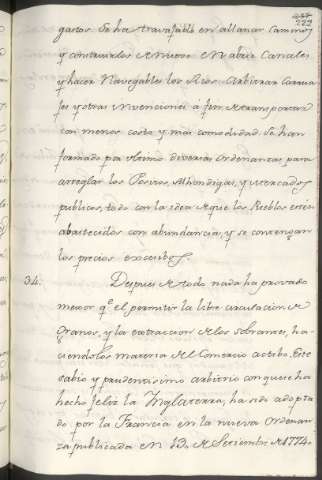 222
gastos. Se ha travajado en allanar Caminos
y construirlos de nuevo en abrir Canales
y hacer Navegables los Rios. Arbitrar Carrua
jes y otras invenciones á fin de transportar
con menos costo y mas comodidad. Se han
formado por ultimo diversas ordenanzas para
arreglar los Positos, Alhondigas, y mercados
publicos, todo con la idea de que los Pueblos esten
abastecidos con abundancia, y se contengan
los precios excesibos.
34. Despues de todo nada ha provado
mejor qe. el permitir la libre circulacion de
Granos, y la extraccion de los sobrantes, ha-
ciendolos materia del Comercio activo. Este
sabio y prudentisimo arbitrio con que se ha
hecho feliz la Inglaterra, ha sido adopta
do por la Francia en la nueva ordenan
za publicada en 13. de Septiembre de 1774.